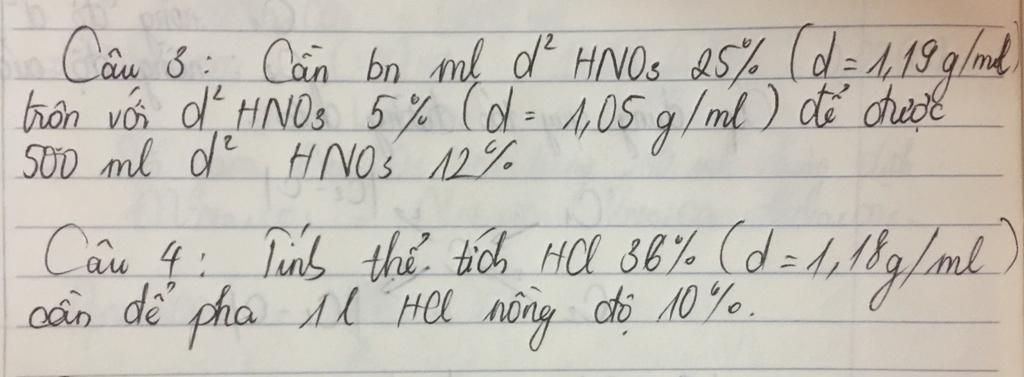 Câu 3: Cần bn ml d² HNO₃ 25% (d = 1,19g/ml)
trộn với d² HNO₃ 5% (d = 1,05 g/ml) để được
500 ml d² HNO₃ 12%
Câu 4: Tính thể tích HCl 36% (d = 1,18g/ml)
cần để pha 1l HCl nồng độ 10%.